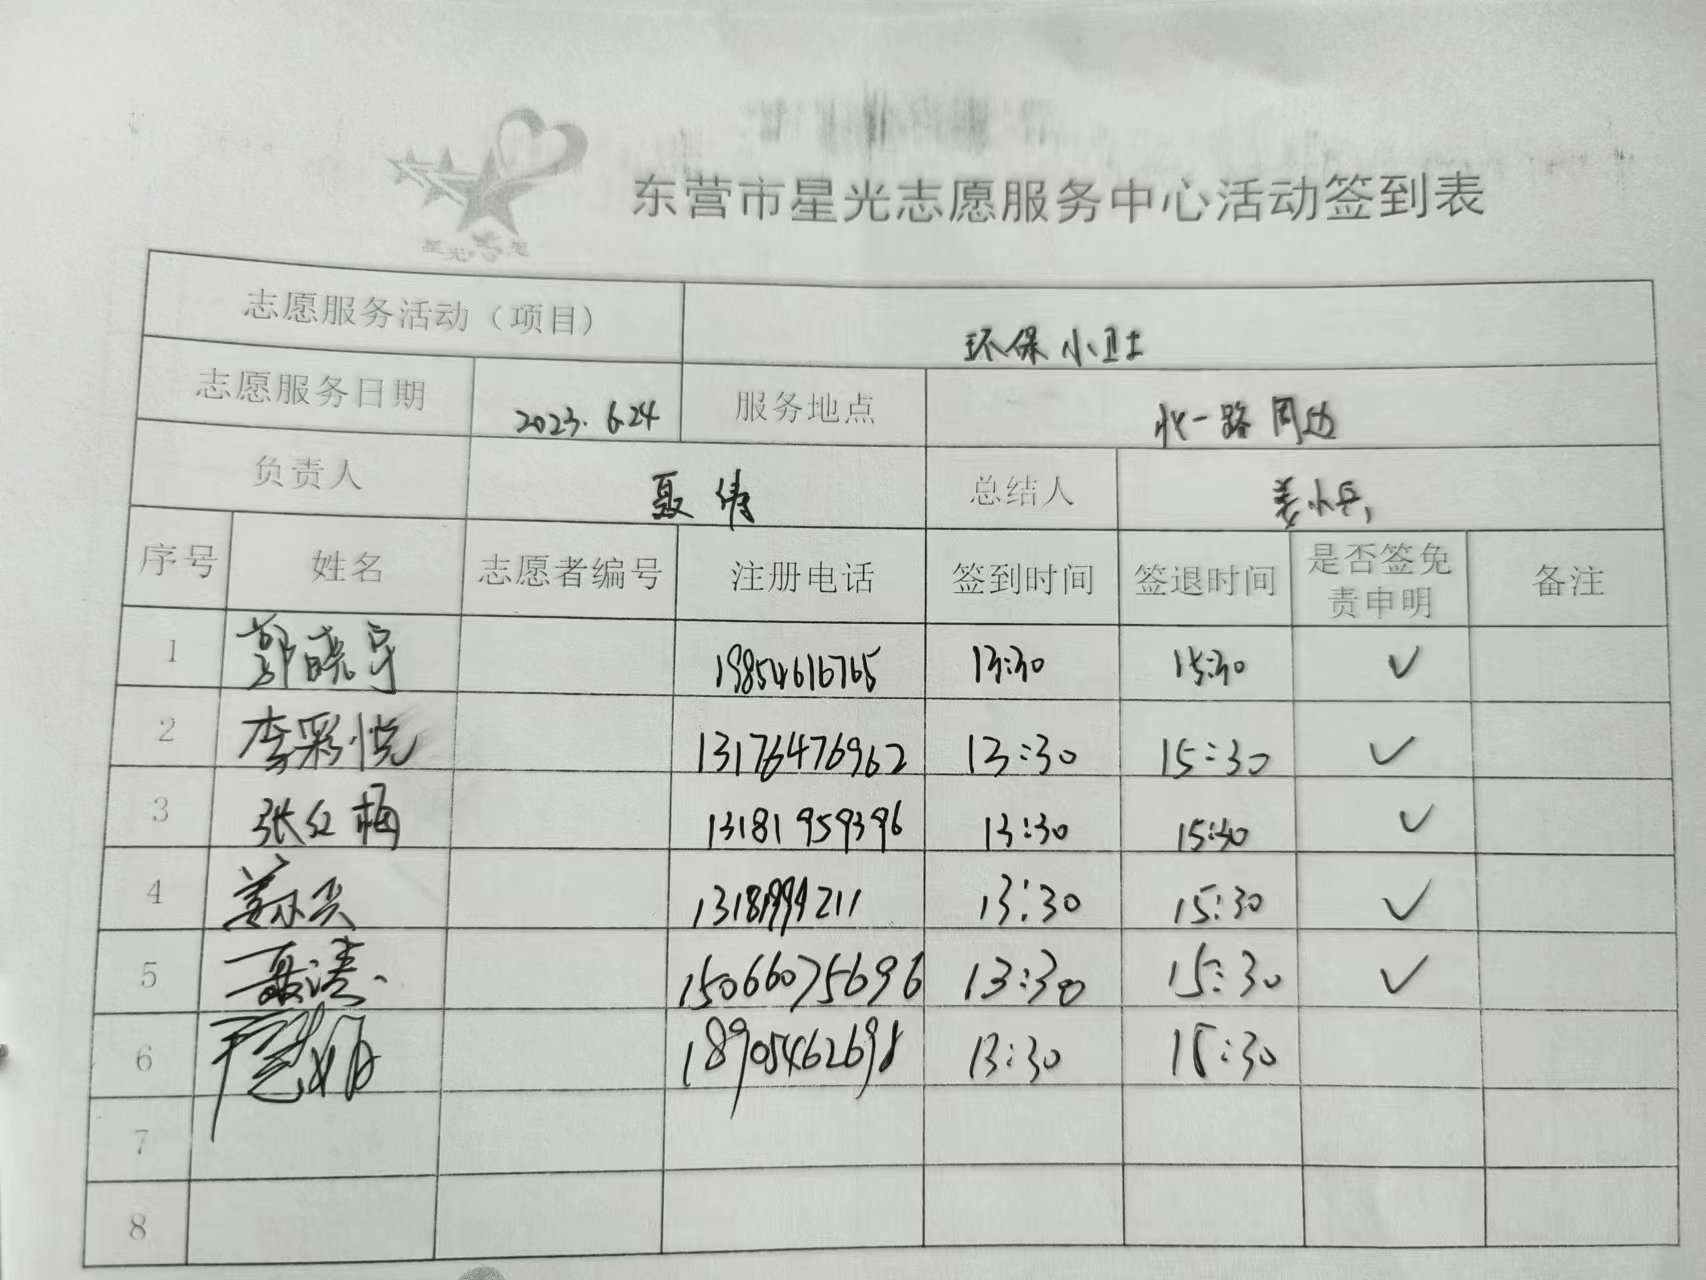 星光志愿
东营市星光志愿服务中心活动签到表
志愿服务活动（项目） 环保小卫士
志愿服务日期 2023.6.24 服务地点 北一路周边
负责人 聂倩 总结人 姜小兵
序号 姓名 志愿者编号 注册电话 签到时间 签退时间 是否签免责申明 备注
1 郭晓守 19854616765 13:30 15:30 ✓
2 李彩悦 13176476962 13:30 15:30 ✓
3 张红梅 13181959396 13:30 15:30 ✓
4 姜小兵 13:30 15:30 ✓
5 15066075696 13:30 15:30 ✓
6 18905462698 13:30 15:30
7
8